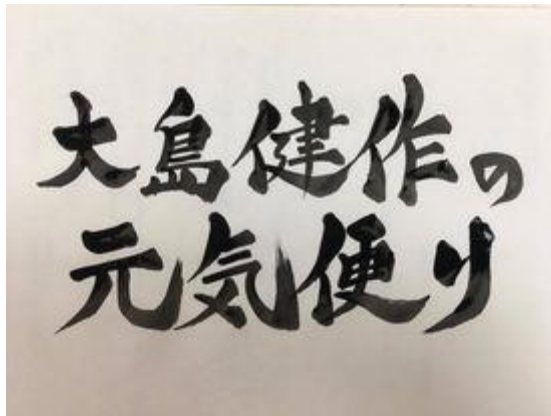 大島健作の
元気便り